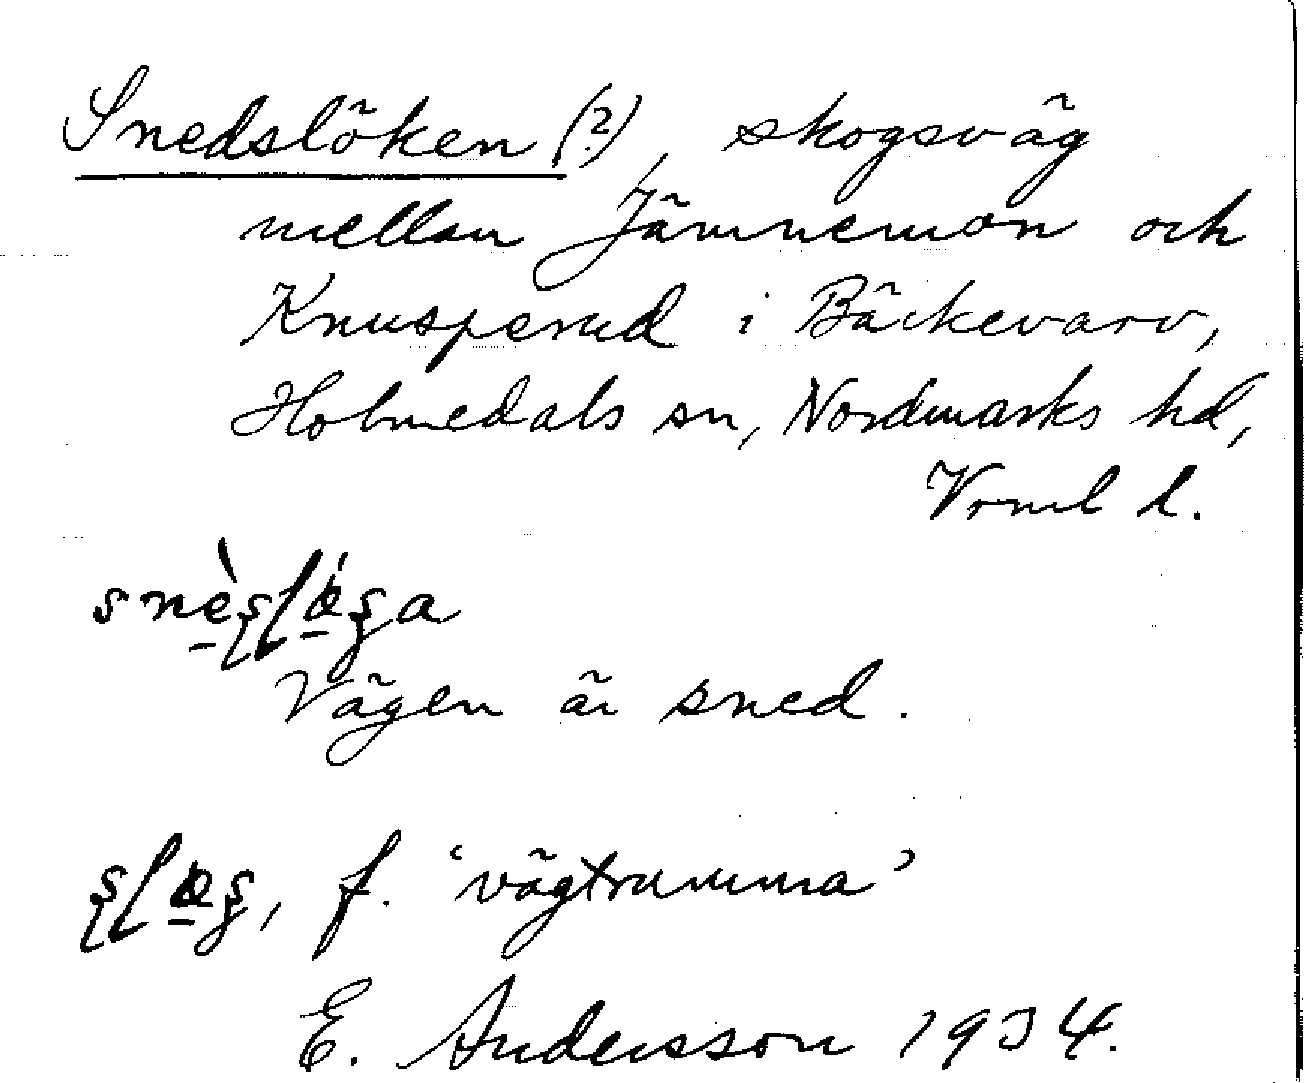 Snedslöken (?), skogsväg
mellan Jämnemon och
Knusperud i Bäckevarv,
Holmedals sn, Nordmarks hd,
Vrml l.
Vägen är sned.
f. 'vägtrumma'
E. Andersson 1934.